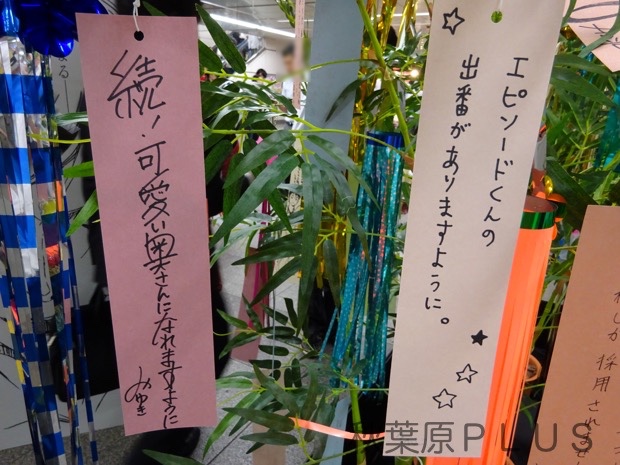 エピソードくんの
出番がありますように。
続!可愛い奥さんになれますように
みゆき
葉原PLUS